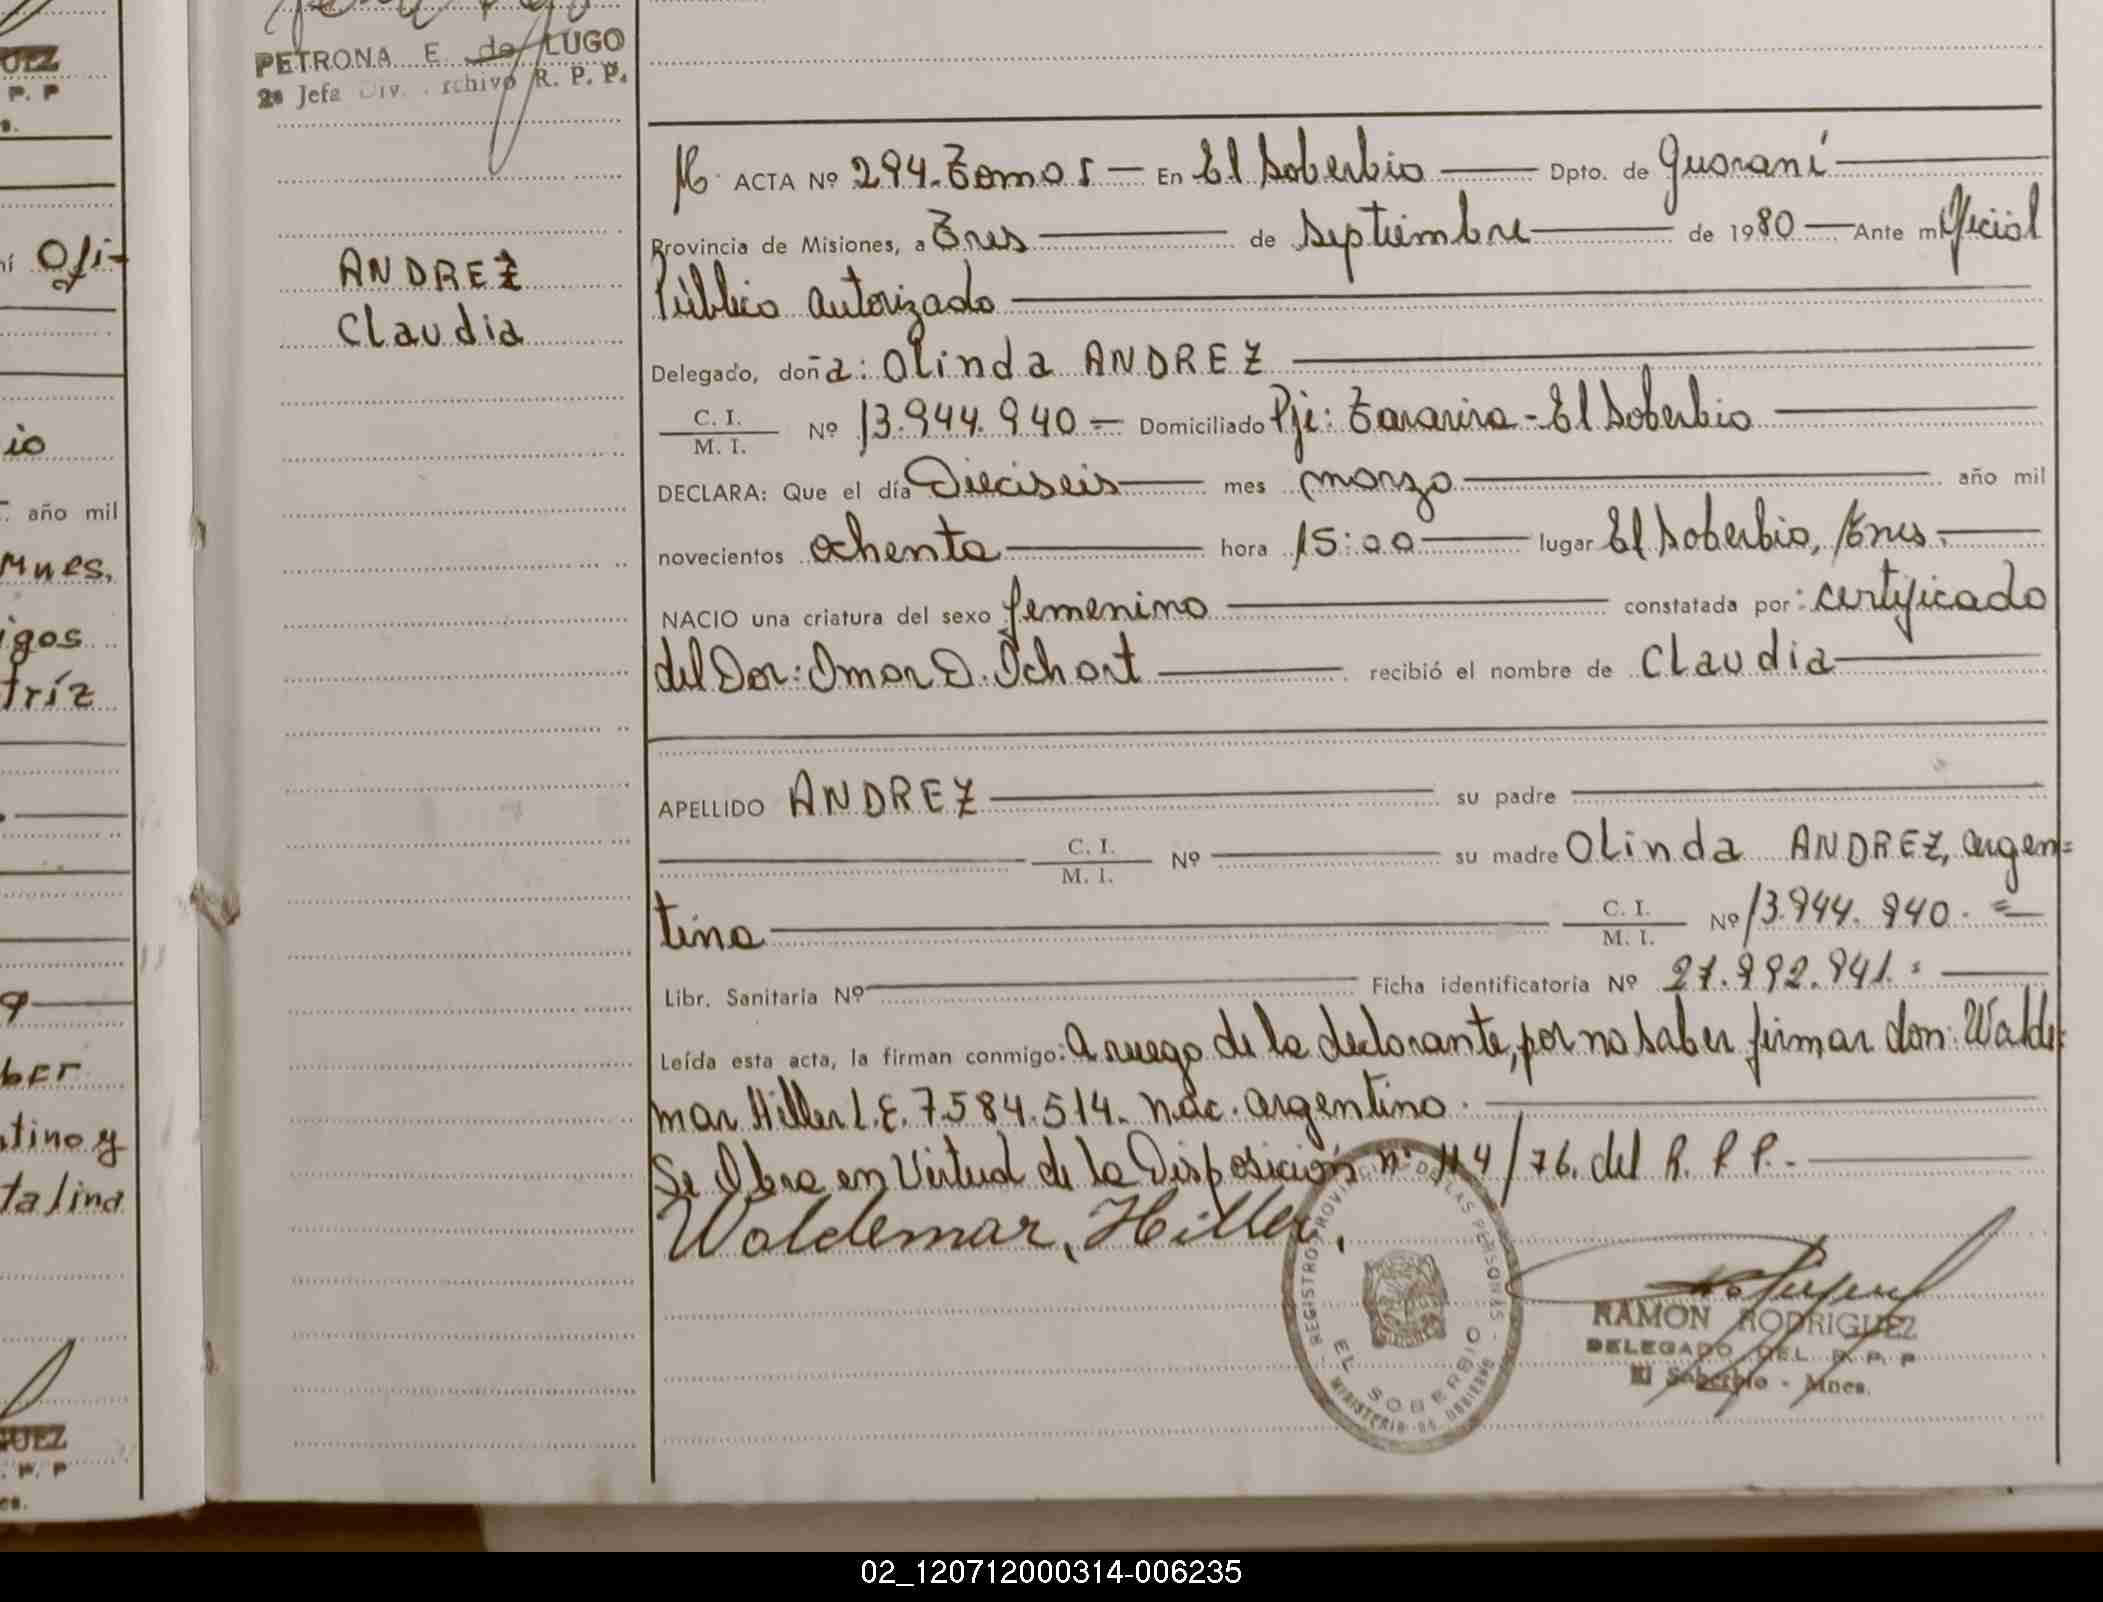 PETRONA E. de LUGO
2a Jefa Div. Archivo R. P. P.
ANDREZ
Claudia
ACTA Nº 294. Tomo 5 — En El Soberbio — Dpto. de Guaraní
Provincia de Misiones, a Tres — de Septiembre — de 1980 — Ante mí Oficial
Público autorizado
Delegado, doña: Olinda ANDREZ
C. I. / M. I. Nº 13.944.940 = Domiciliado Pje: Tararira - El Soberbio
DECLARA: Que el día Dieciseis — mes marzo — año mil
novecientos ochenta — hora 15:00 — lugar El Soberbio,
NACIO una criatura del sexo femenino — constatada por: certificado
del Dor: Omar D. — recibió el nombre de Claudia
APELLIDO ANDREZ — su padre
C. I. / M. I. Nº — su madre Olinda ANDREZ, argen=
tina — C. I. / M. I. Nº 13.944.940. =
Libr. Sanitaria Nº — Ficha identificatoria Nº 27.992.941. =
Leída esta acta, la firman conmigo: A ruego de la declarante, por no saber firmar don: Walde
mar Hiller L.E. 7.584.514. nac. argentino.
Se Obra en Virtud de la Disposición nº 114/76. del R. P. P. -
Waldemar, Hiller.
REGISTRO PROVINCIAL DE LAS PERSONAS -
EL SOBERBIO
MINISTERIO DE GOBIERNO
RAMON RODRIGUEZ
DELEGADO DEL R. P. P
El Soberbio - Mnes.
Ofi-
io
año mil
Mnes,
igos
tríz
ber
tino y
talina
GUEZ
02_120712000314-006235